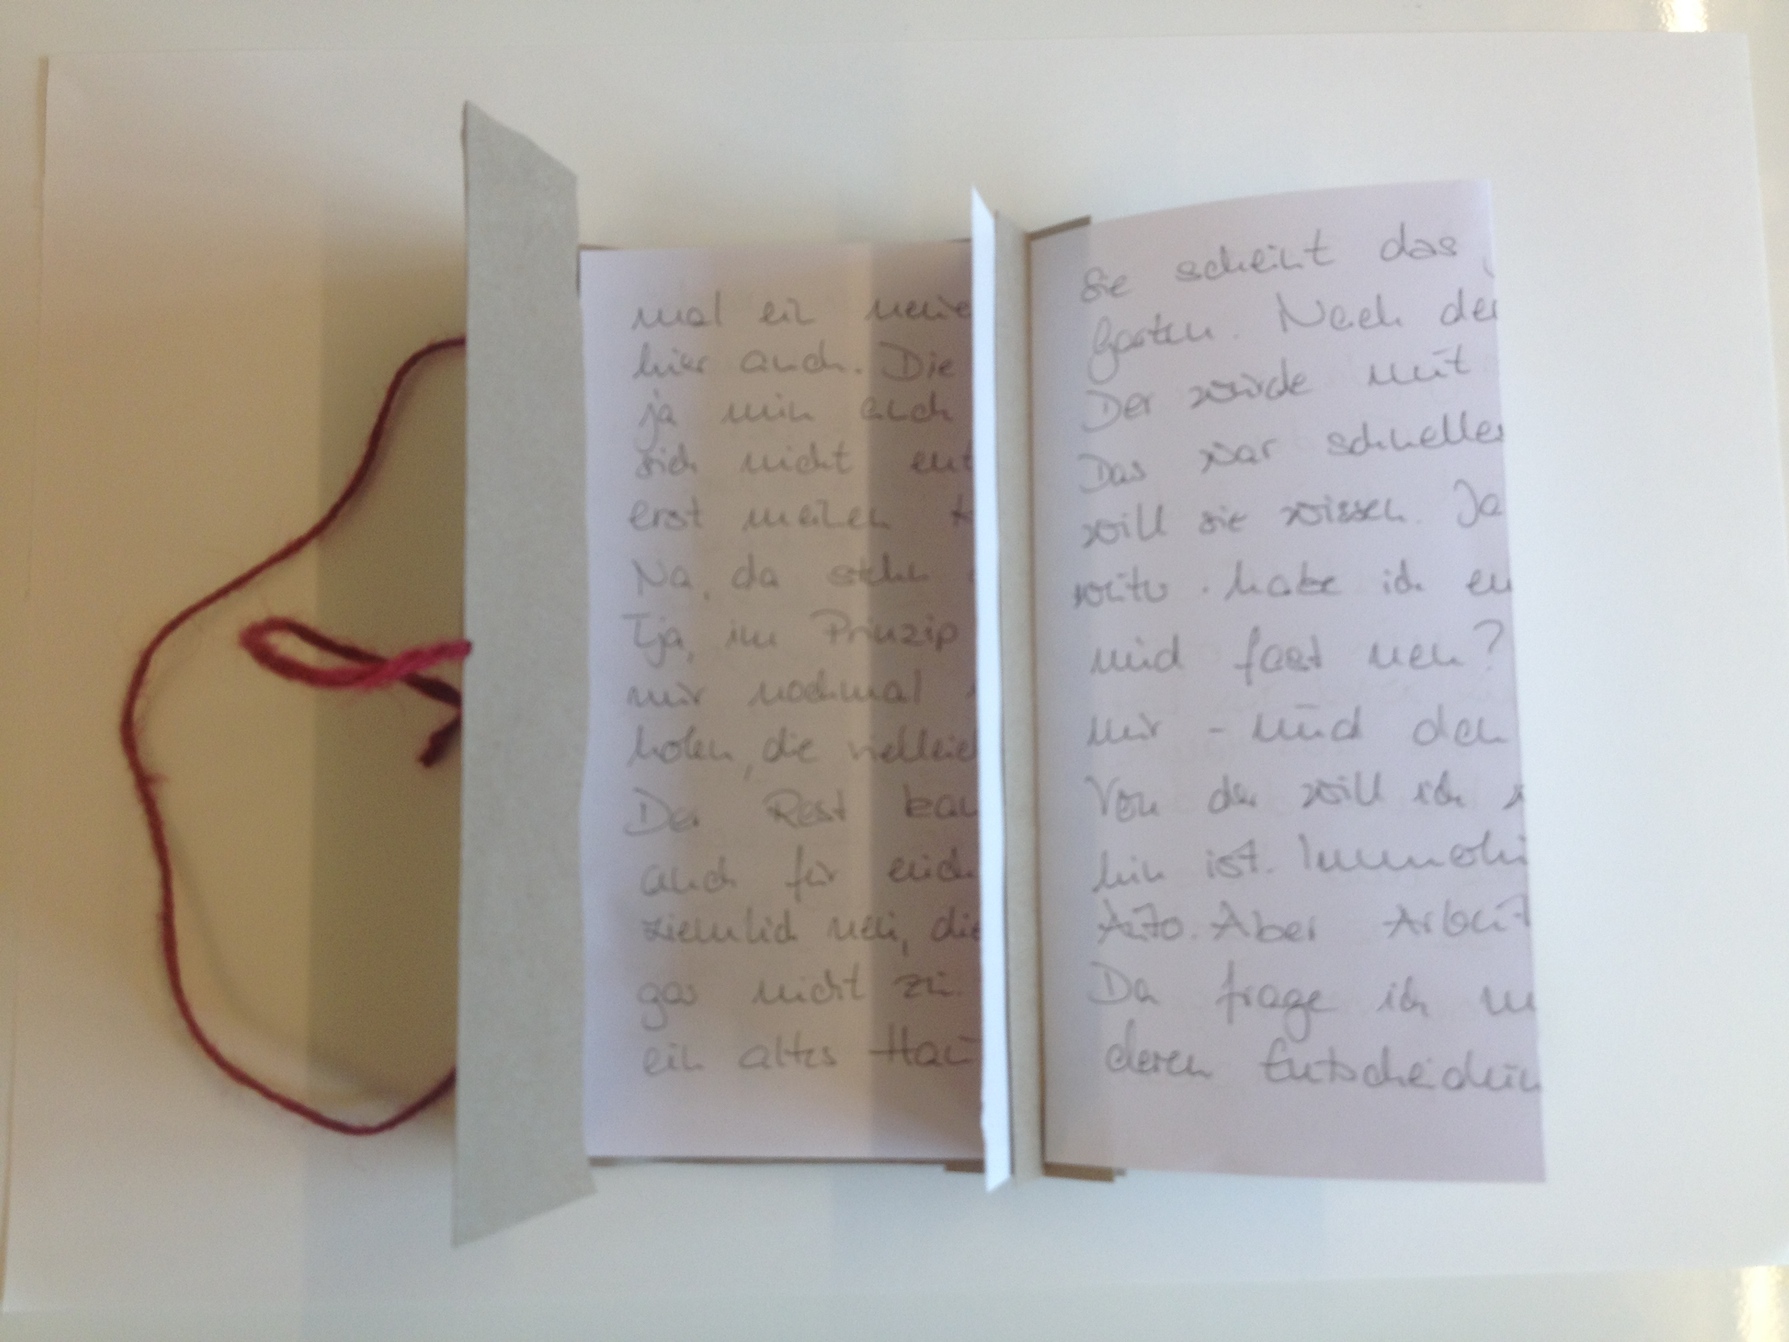 mal ein neue
hier auch. Die
ja nun auch
sich nicht ent
erst meinen K
Na, da steht
Tja, im Prinzip
mir nochmal
holen, die vielleich
Der Rest kau
auch für euch
ziemlich neu, die
gar nicht zu
ein altes Hau
Sie scheint das
Garten. Nach der
Der würde mit
Das war schneller
will sie wissen. Ja
habe ich eu
und fast neu?
mir - und den
Von der will ich
hin ist. Immobi
Auto. Aber Arbeit
Da frage ich
deren Entscheidun